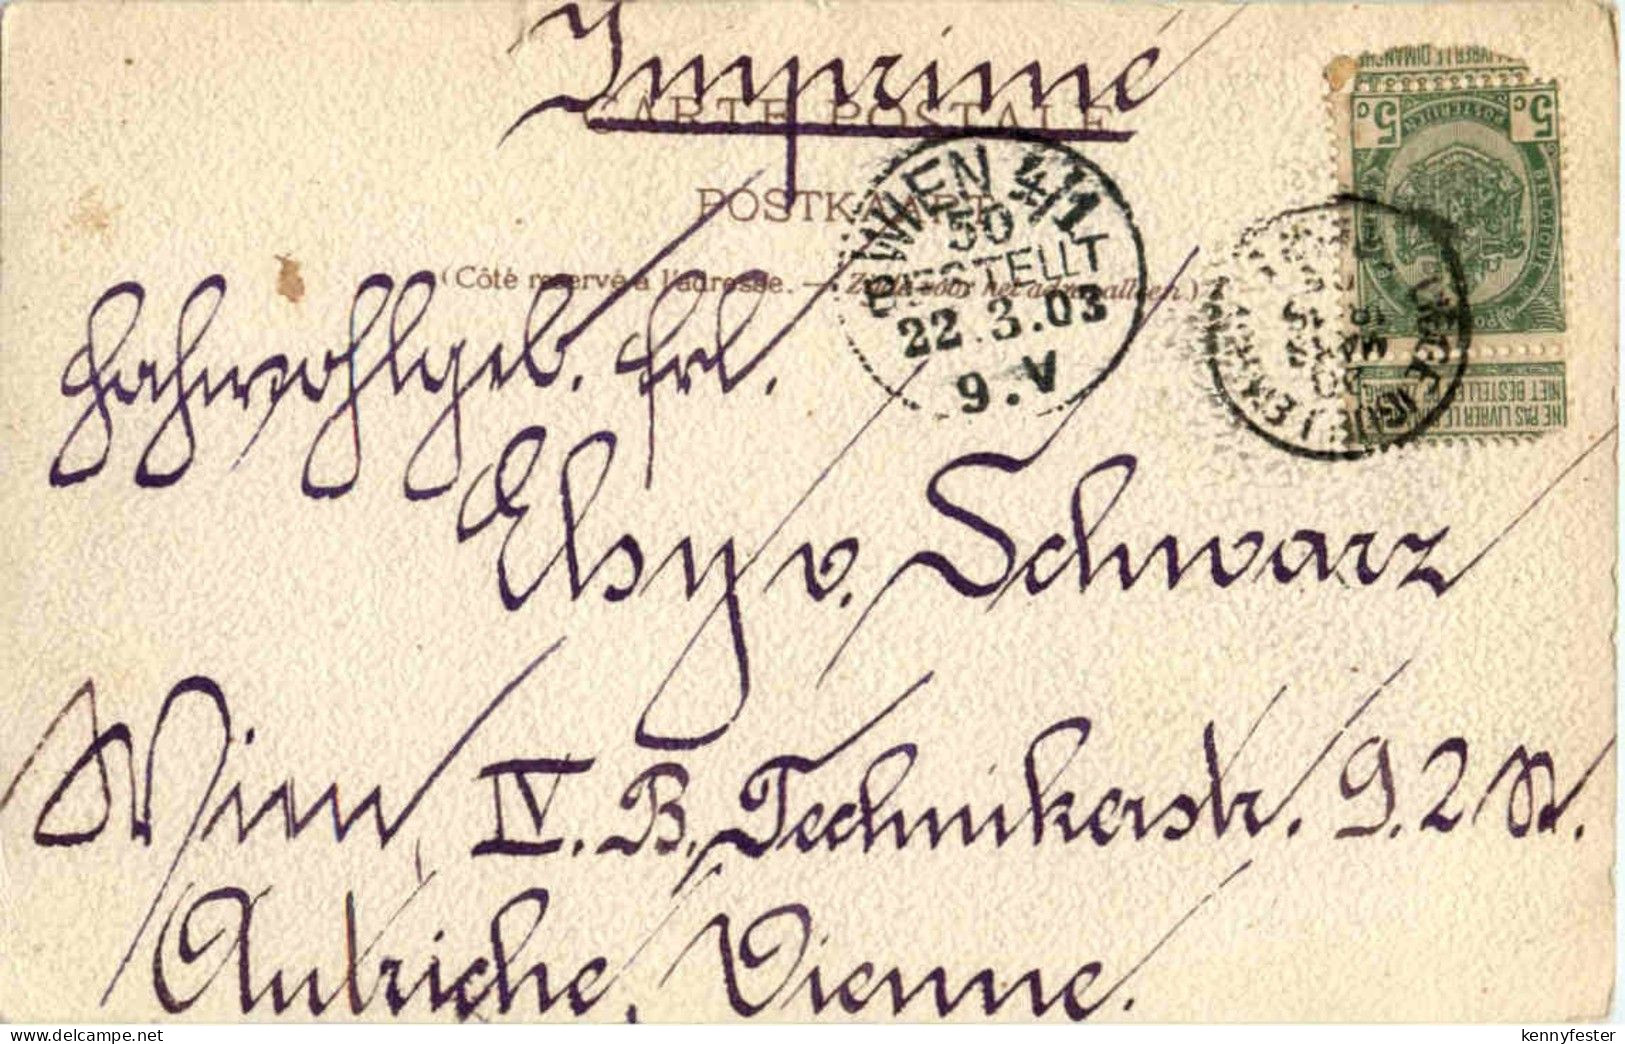 Imprimé
CARTE POSTALE
POSTKAART
(Côté reservé à l'adresse. — Zijde voor het adres alleen.)
WIEN 4/1
50
BESTELLT
22.3.03
9.V
5c 5c
BELGIQUE
LIÈGE (GUILLEMINS)
NE PAS LIVRER LE DIMANCHE
NIET BESTELLEN OP ZONDAG
Hochwohlgeb. Frl.
Elsy v. Schwarz
Wien IV. B. Technikerstr. 9. 2 St.
Autriche, Vienne.
kennyfester